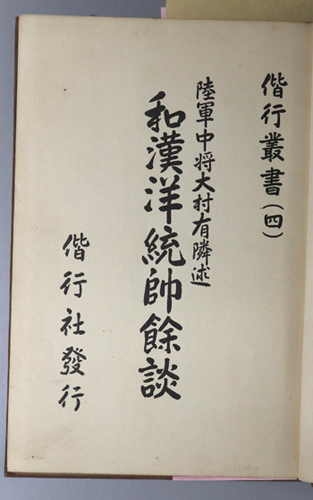 偕行叢書(四)
陸軍中将大村有隣述
和漢洋統帥餘談
偕行社發行